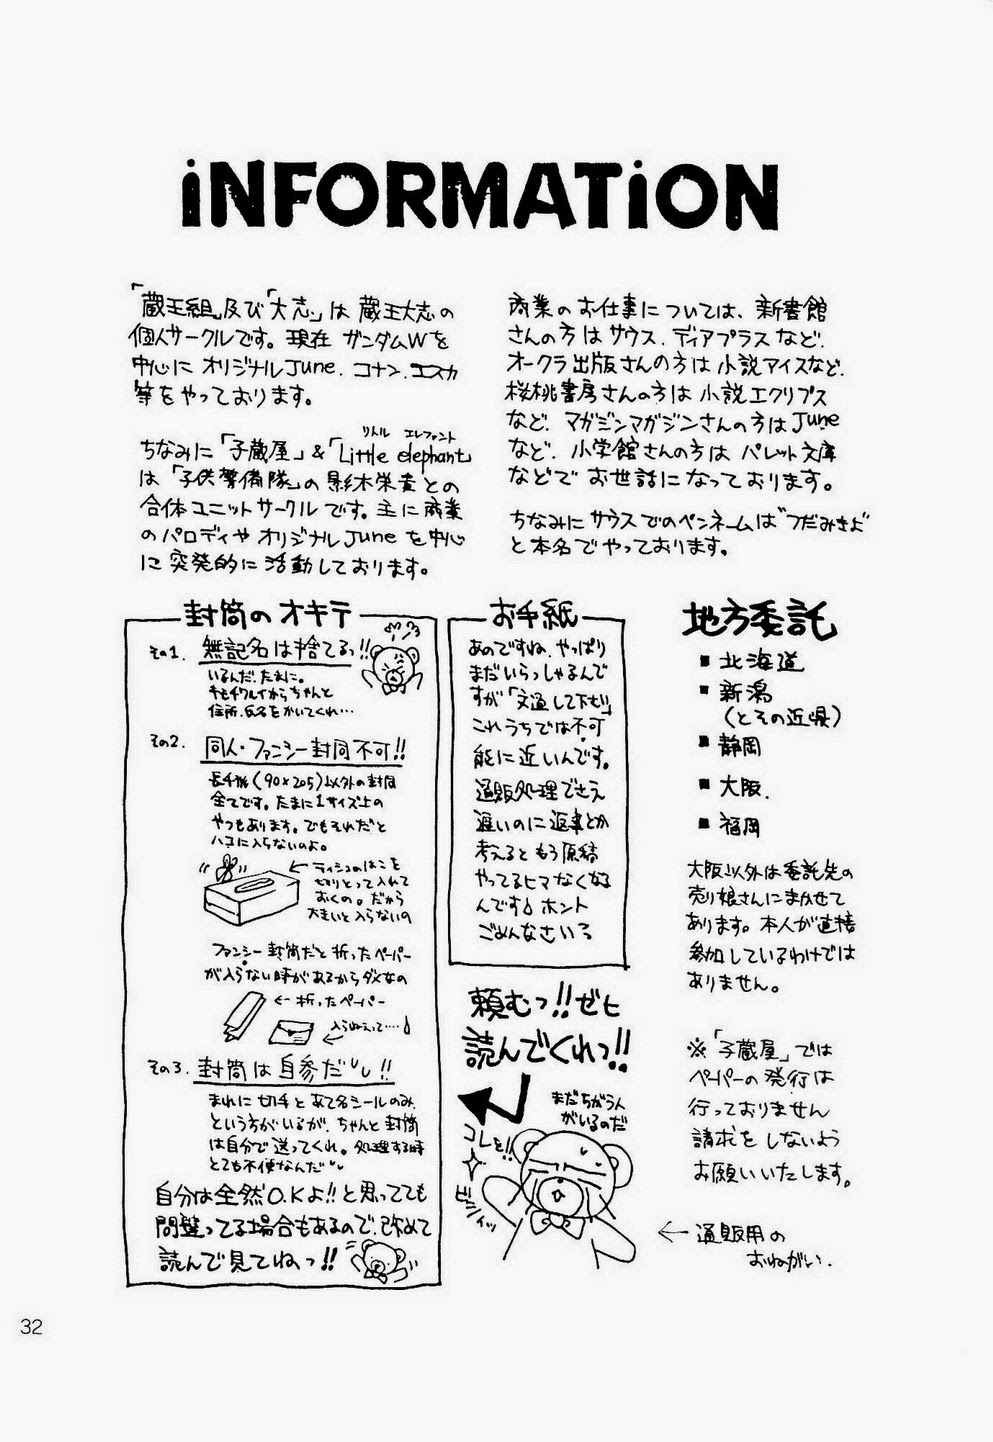 iNFORMATiON
「蔵王組」及び「大志」は 蔵王大志の
個人サークルです。現在 ガンダムWを
中心に オリジナルJune、コナン、エスカ
等をやっております。
リトル エレファント
ちなみに「子蔵屋」&「Little elephant」
は「子供警備隊」の 影木栄貴との
合体ユニットサークルです。主に商業
のパロディや オリジナルJuneを中心
に 突発的に活動しております。
商業のお仕事については、新書館
さんの方はサウス、ディアプラスなど、
オークラ出版さんの方は小説アイスなど、
桜桃書房さんの方は小説エクリプス
など、マガジンマガジンさんの方はJune
など、小学館さんの方はパレット文庫
などで お世話になっております。
ちなみにサウスでのペンネームは“つだみきよ”
と本名でやっております。
封筒のオキテ
その1. 無記名は捨てるっ!!
いるんだ、たまに。
キモチワルイからちゃんと
住所、氏名をかいてくれ…
その2. 同人・ファンシー封筒不可!!
長4版(90×205)以外の封筒
全てです。たまに1サイズ上の
やつもあります。でもそれだと
ハコに入らないのよ。
←ティシュのはこを
切りとって入れて
おくの。だから
大きいと入らないの
ファンシー封筒だと折ったペーパー
が入らない時があるからダメなの
←折ったペーパー
入らねえって…
その3. 封筒は自参だ!!
まれに切手とあて名シールのみ、
という方がいるが、ちゃんと封筒
は自分で送ってくれ。処理する時
とても不便なんだ
自分は全然O.Kよ!!と思ってても
間違ってる場合もあるので、改めて
読んで見てねっ!!
お手紙
あのですね、やっぱり
まだいらっしゃるんで
すが「文通して下さい」
これうちでは不可
能に近いんです。
通販処理でさえ
遅いのに返事とか
考えるともう原稿
やってるヒマなくなる
んです ホント
ごめんなさいる
頼むっ!!ゼヒ
読んでくれっ!!
まだちがう人
がいるのだ
コレを!!
地方委託
■北海道
■新潟
(とその近県)
■静岡
■大阪.
■福岡
大阪以外は委託先の
売り娘さんにまかせて
あります。本人が直接
参加しているわけでは
ありません。
※「子蔵屋」では
ペーパーの発行は
行っておりません
請求をしないよう
お願いいたします。
←通販用の
おねがい.
32